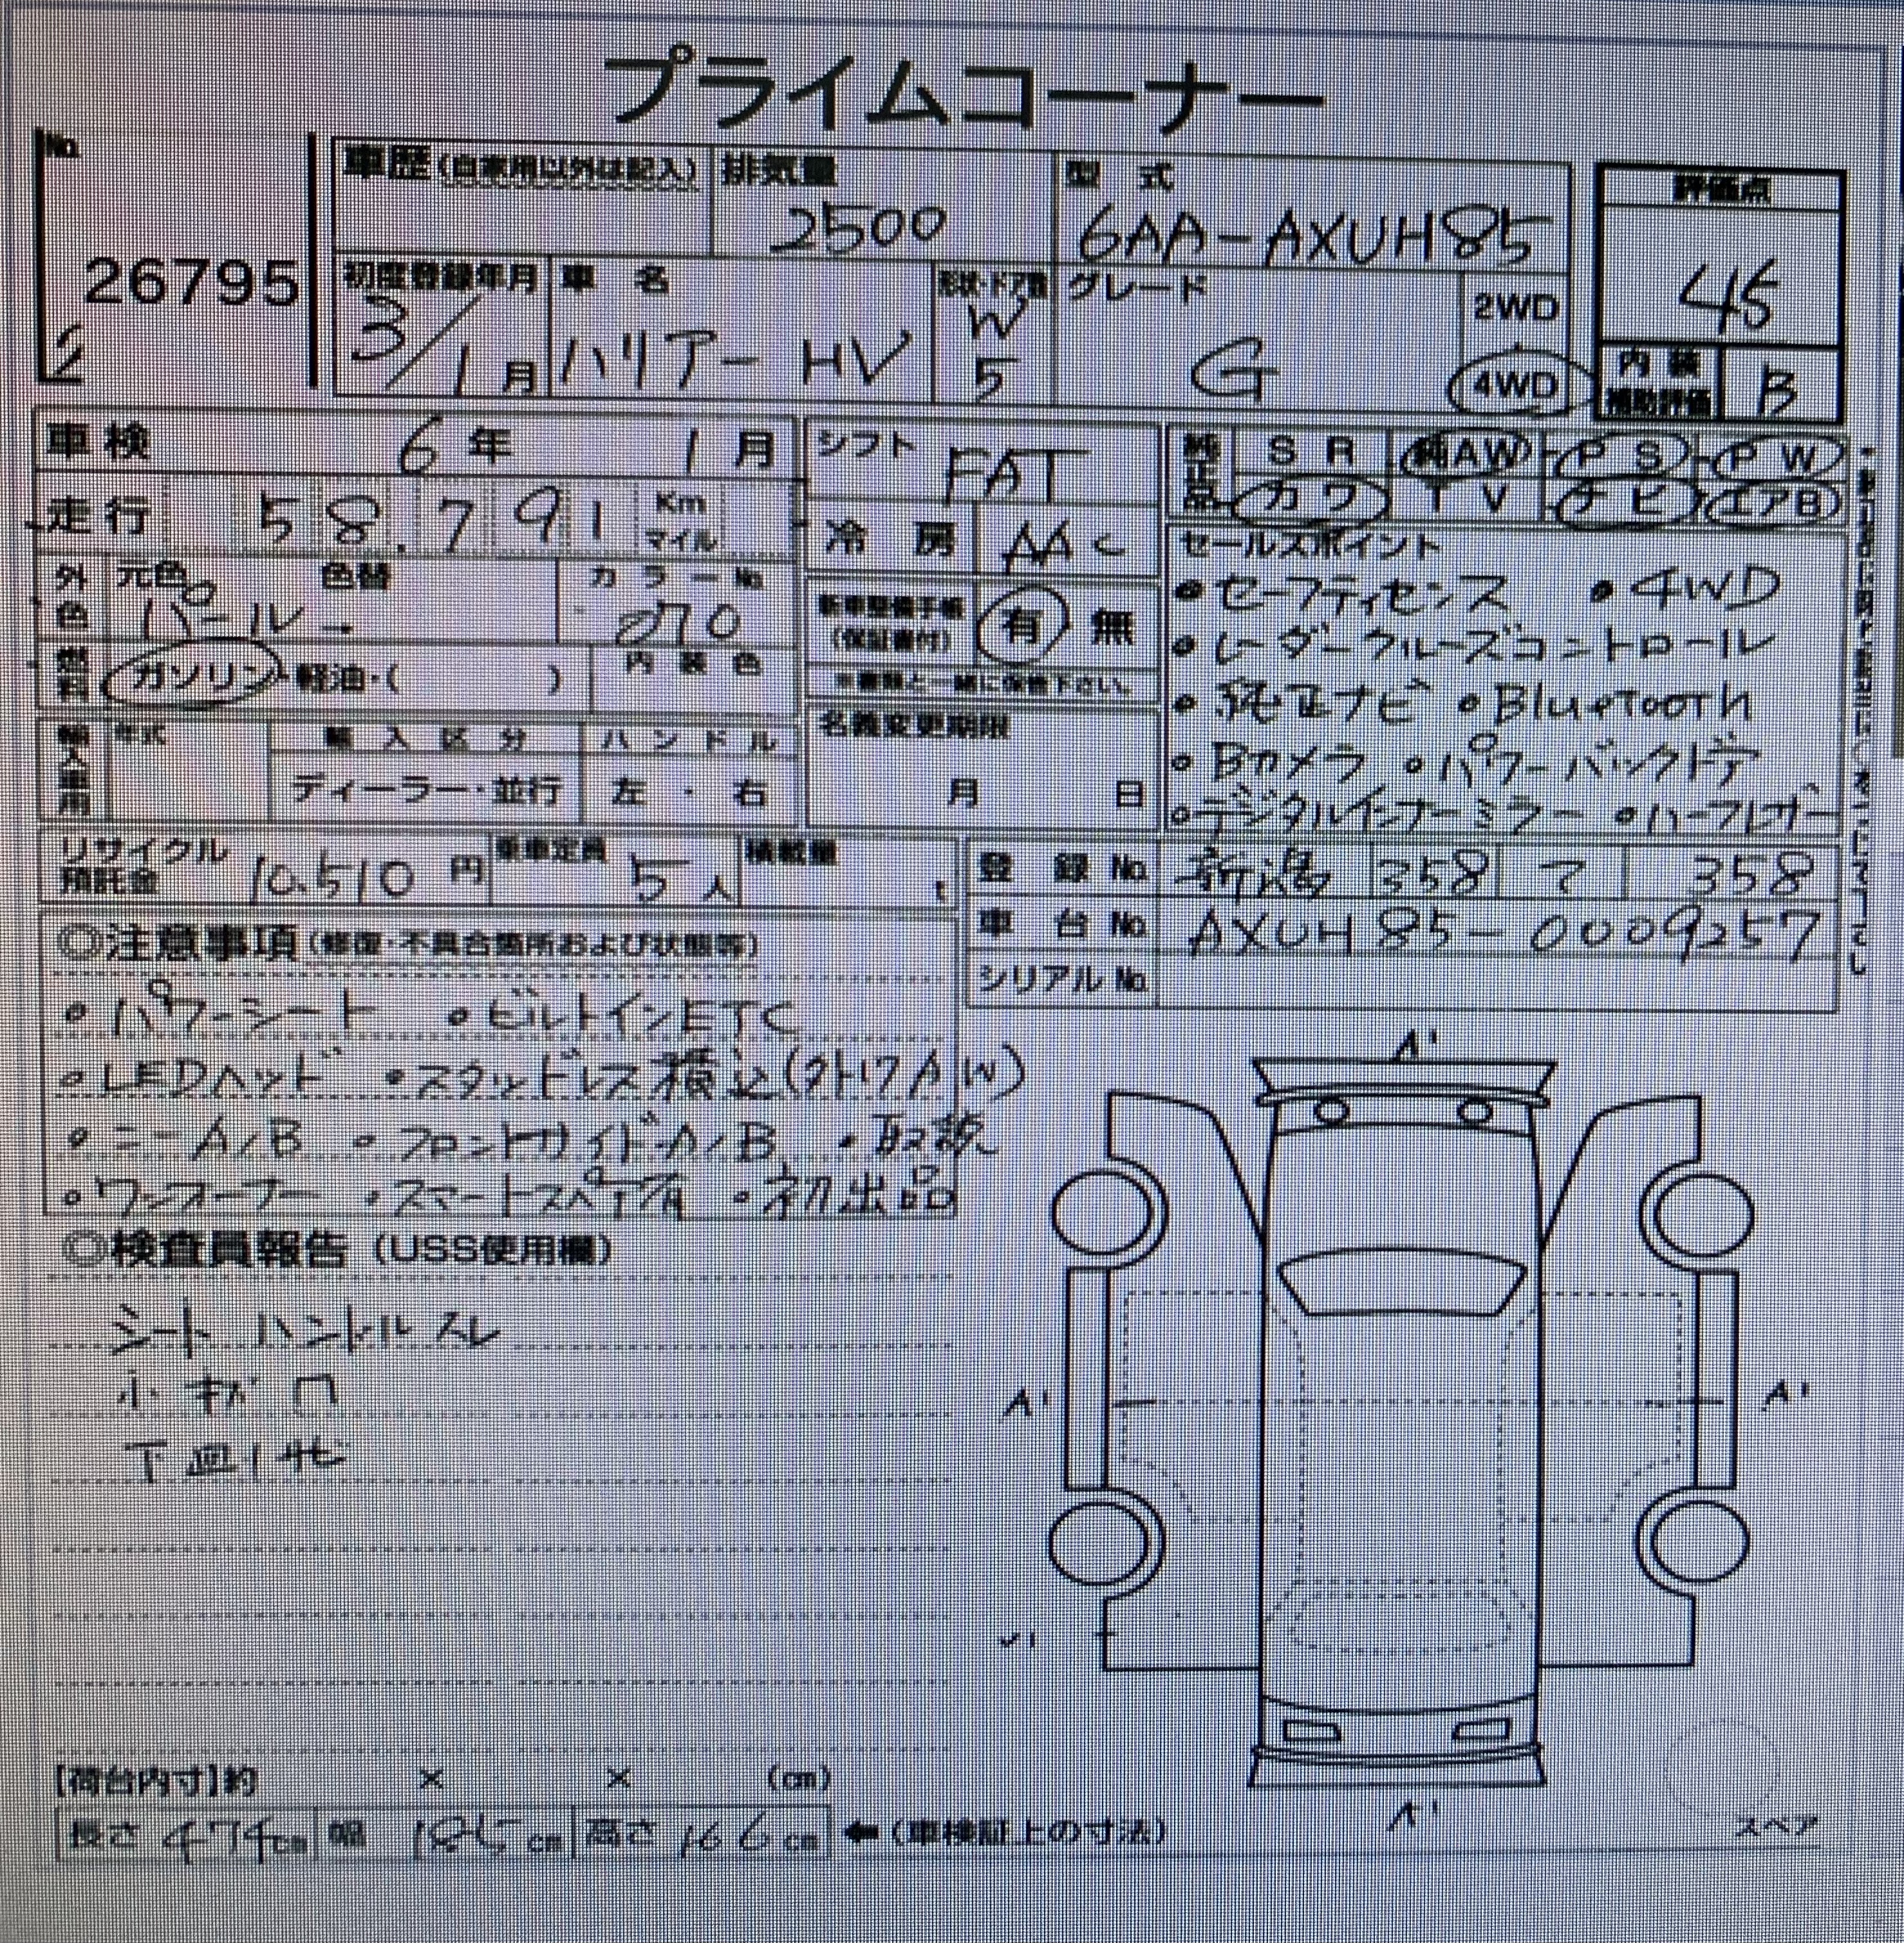 プライムコーナー
No.
26795
車歴(自家用以外は記入)
排気量
2500
型 式
6AA-AXUH85
評価点
45
初度登録年月
3/1月
車 名
ハリアー HV
形状・ドア数
W
5
グレード
G
2WD
4WD
内装
補助評価
B
車検 6年 1月
走行 58.791 Km
マイル
シフト
FAT
冷 房 AAC
純正品 SR AW PS PW
カワ TV ナビ エアB
外色
元色
パール→
色替
カラーNo.
070
燃料
ガソリン・軽油・( )
内装色
新車整備手帳
(保証書付)
有 無
※書類と一緒に保管下さい。
セールスポイント
• セーフティセンス • 4WD
• レーダークルーズコントロール
• 純正ナビ • BlueTooth
• Bカメラ • パワーバックドア
• デジタルインナーミラー • ハーフレザー
輸入車用
年式
輸入区分
ディーラー・並行
ハンドル
左・右
名義変更期限
月 日
リサイクル
預託金
10.510 円
乗車定員
5人
積載量
t
登録No. 新潟 358 て 358
車台No. AXUH85-0009257
シリアルNo.
◎注意事項(修復・不具合箇所および状態等)
• パワーシート • ビルトインETC
• LEDヘッド • スタッドレス積込(外17A/W)
• ニーA/B • フロントサイドA/B • 取説
• ワンオーナー • スマートスペア有 • 初出品
◎検査員報告(USS使用欄)
シート ハンドル スレ
小キズ 凹
下廻りサビ
A'
A'
A'
A'
[荷台内寸]約 × × (cm)
長さ 474cm 幅 185cm 高さ 166cm ←(車検証上の寸法)
スペア